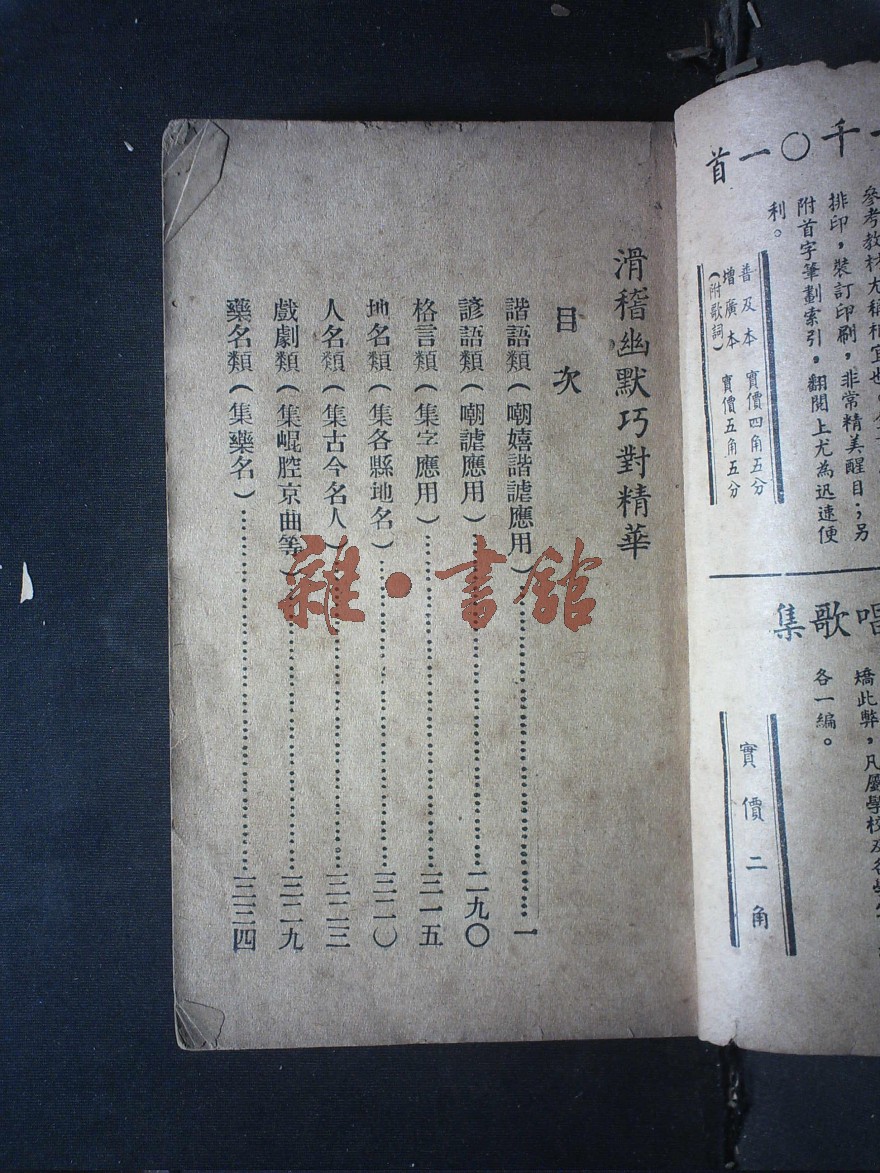 千〇一首
參考教材尤稱相宜也。
排印，裝訂印刷，非常精美醒目；另
附首字筆劃索引。翻閱上尤為迅速便
利。
普及本　實價四角五分
增廣本　實價五角五分
（附歌詞）
唱歌集
矯此弊，凡屬學校及各
各一編。
實價二角
滑稽幽默巧對精華
目次
諧語類（嘲嬉諧謔應用）……一
諺語類（嘲謔應用）……二九〇
格言類（集字應用）……三一五
地名類（集各縣地名）……三二〇
人名類（集古今名人）……三二三
戲劇類（集崐腔京曲等）……三二九
藥名類（集藥名）……三三四
雜·書館